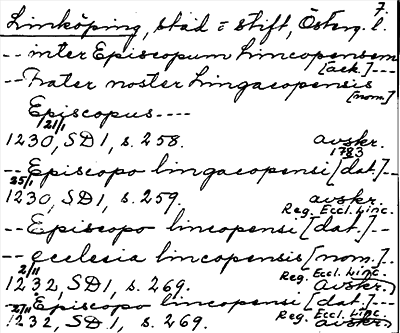 7.
Linköping, stad o stift, Österg. l.
-- inter Episcopum Lincopensem
[ack.] ---
-- Frater noster Lingacopensis
[nom.]
Episcopus ----
21/1
1230, SD 1, s. 258. avskr.
1783
-- Episcopo lingacopensi [dat.] --
25/1
1230, SD 1, s. 259. avskr.
Reg. Eccl. Linc.
-- Episcopo lincopensi [dat.] --
-- ecclesia lincopensis [nom.] --
2/11 Reg. Eccl. Linc.
1232, SD 1, s. 269. avskr.
-- Episcopo lincopensi [dat.] ---
2/11 Reg. Eccl. Linc.
1232, SD 1, s. 269. avskr.